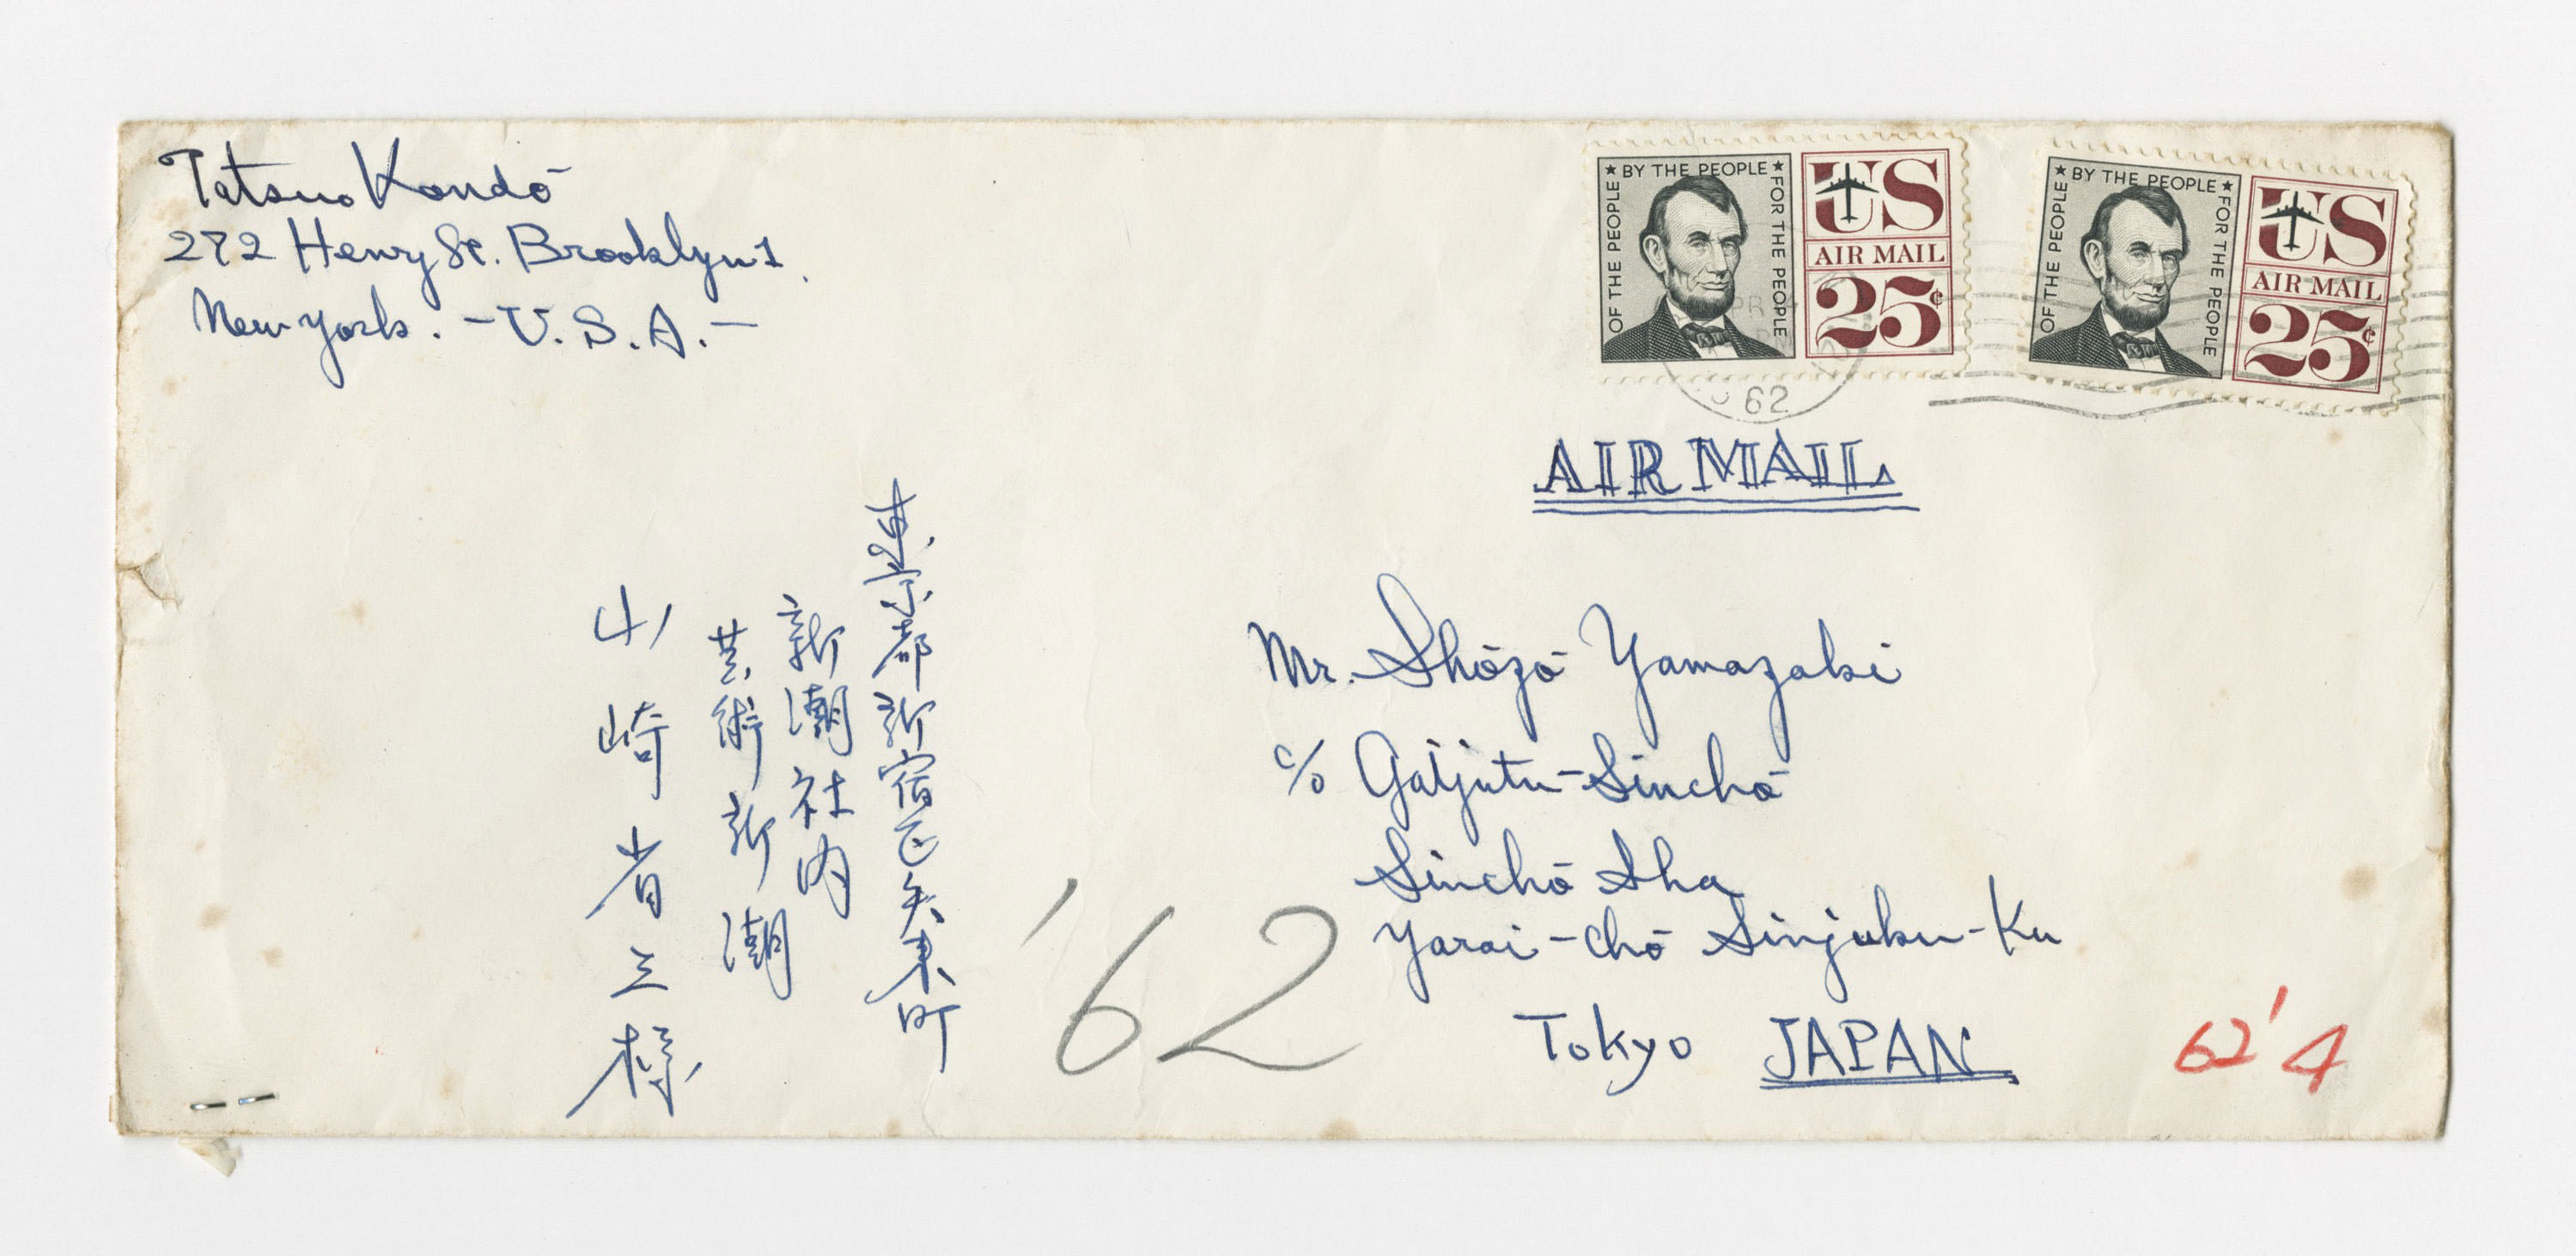 Tatsuo Kondō
272 Henry St. Brooklyn 1.
New York. - U.S.A. -
OF THE PEOPLE ★ BY THE PEOPLE ★ FOR THE PEOPLE
US
AIR MAIL
25¢
OF THE PEOPLE ★ BY THE PEOPLE ★ FOR THE PEOPLE
US
AIR MAIL
25¢
62
AIR MAIL
東京都新宿区矢来町
新潮社内
芸術新潮
山崎省三様
Mr. Shōzō Yamazaki
c/o Gaijutu-Sinchō
Sinchō Sha
Yarai-chō Sinjuku-Ku
Tokyo JAPAN
'62
62'4